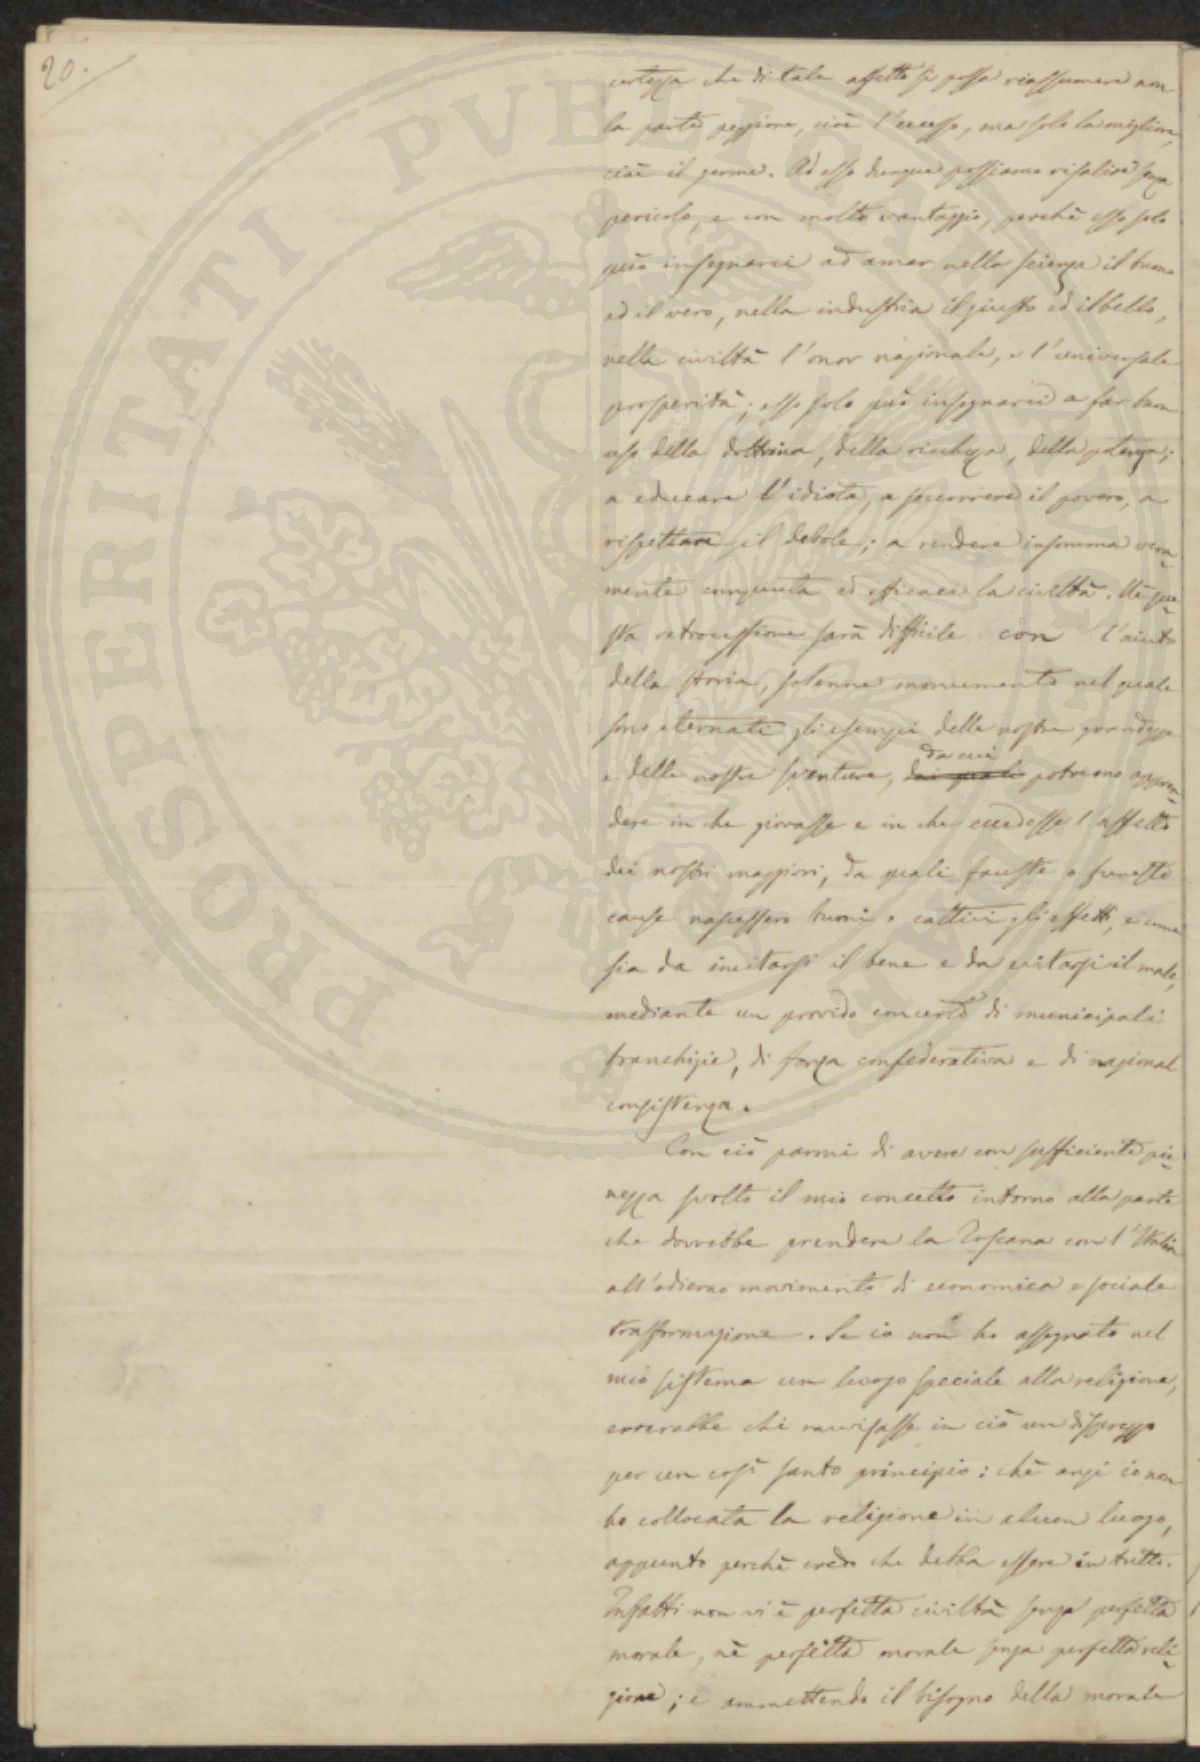 20.
certezza che di tale affetto si possa riassumere non
la parte peggiore, cioè l'eccesso, ma solo la migliore,
cioè il germe. Ad esso dunque possiamo risalire senza
pericolo, e con molto vantaggio, perchè esso solo
può insegnarci ad amar nella scienza il buono
ed il vero, nella industria il giusto ed il bello,
nella civiltà l'onor nazionale, e l'universale
prosperità; esso solo può insegnarci a far buon
uso della dottrina, della ricchezza, della potenza;
a educare l'idiota, a soccorrere il povero, a
rispettare il debole; a rendere insomma vera-
mente compiuta ed efficace la civiltà. Nè que-
sta retrocessione sarà difficile con l'aiuto
della storia, solenne monumento nel quale
sono eternati gli esempi delle nostre grandezze
da cui
e delle nostre sventure, dai quali potremo appren-
dere in che giovasse e in che eccedesse l'affetto
dei nostri maggiori, da quali fauste o funeste
cause nascessero buoni o cattivi gli effetti, e come
sia da imitarsi il bene e da evitarsi il male,
mediante un provido concerto di municipali
franchigie, di forza confederativa e di nazional
consistenza.
Con ciò parmi di avere con sufficiente pie-
nezza svolto il mio concetto intorno alla parte
che dovrebbe prendere la Toscana con l'Italia
all'odierno movimento di economica e sociale
trasformazione. Se io non ho assegnato nel
mio sistema un luogo speciale alla religione,
errerebbe chi ravvisasse in ciò un disprezzo
per un così santo principio: chè anzi io non
ho collocata la religione in alcun luogo,
appunto perchè credo che debba essere in tutto.
Infatti non vi è perfetta civiltà senza perfetta
morale, nè perfetta morale senza perfetta reli-
gione; e ammettendo il bisogno della morale
PROSPERITATI PVBLICAE AVGENDAE